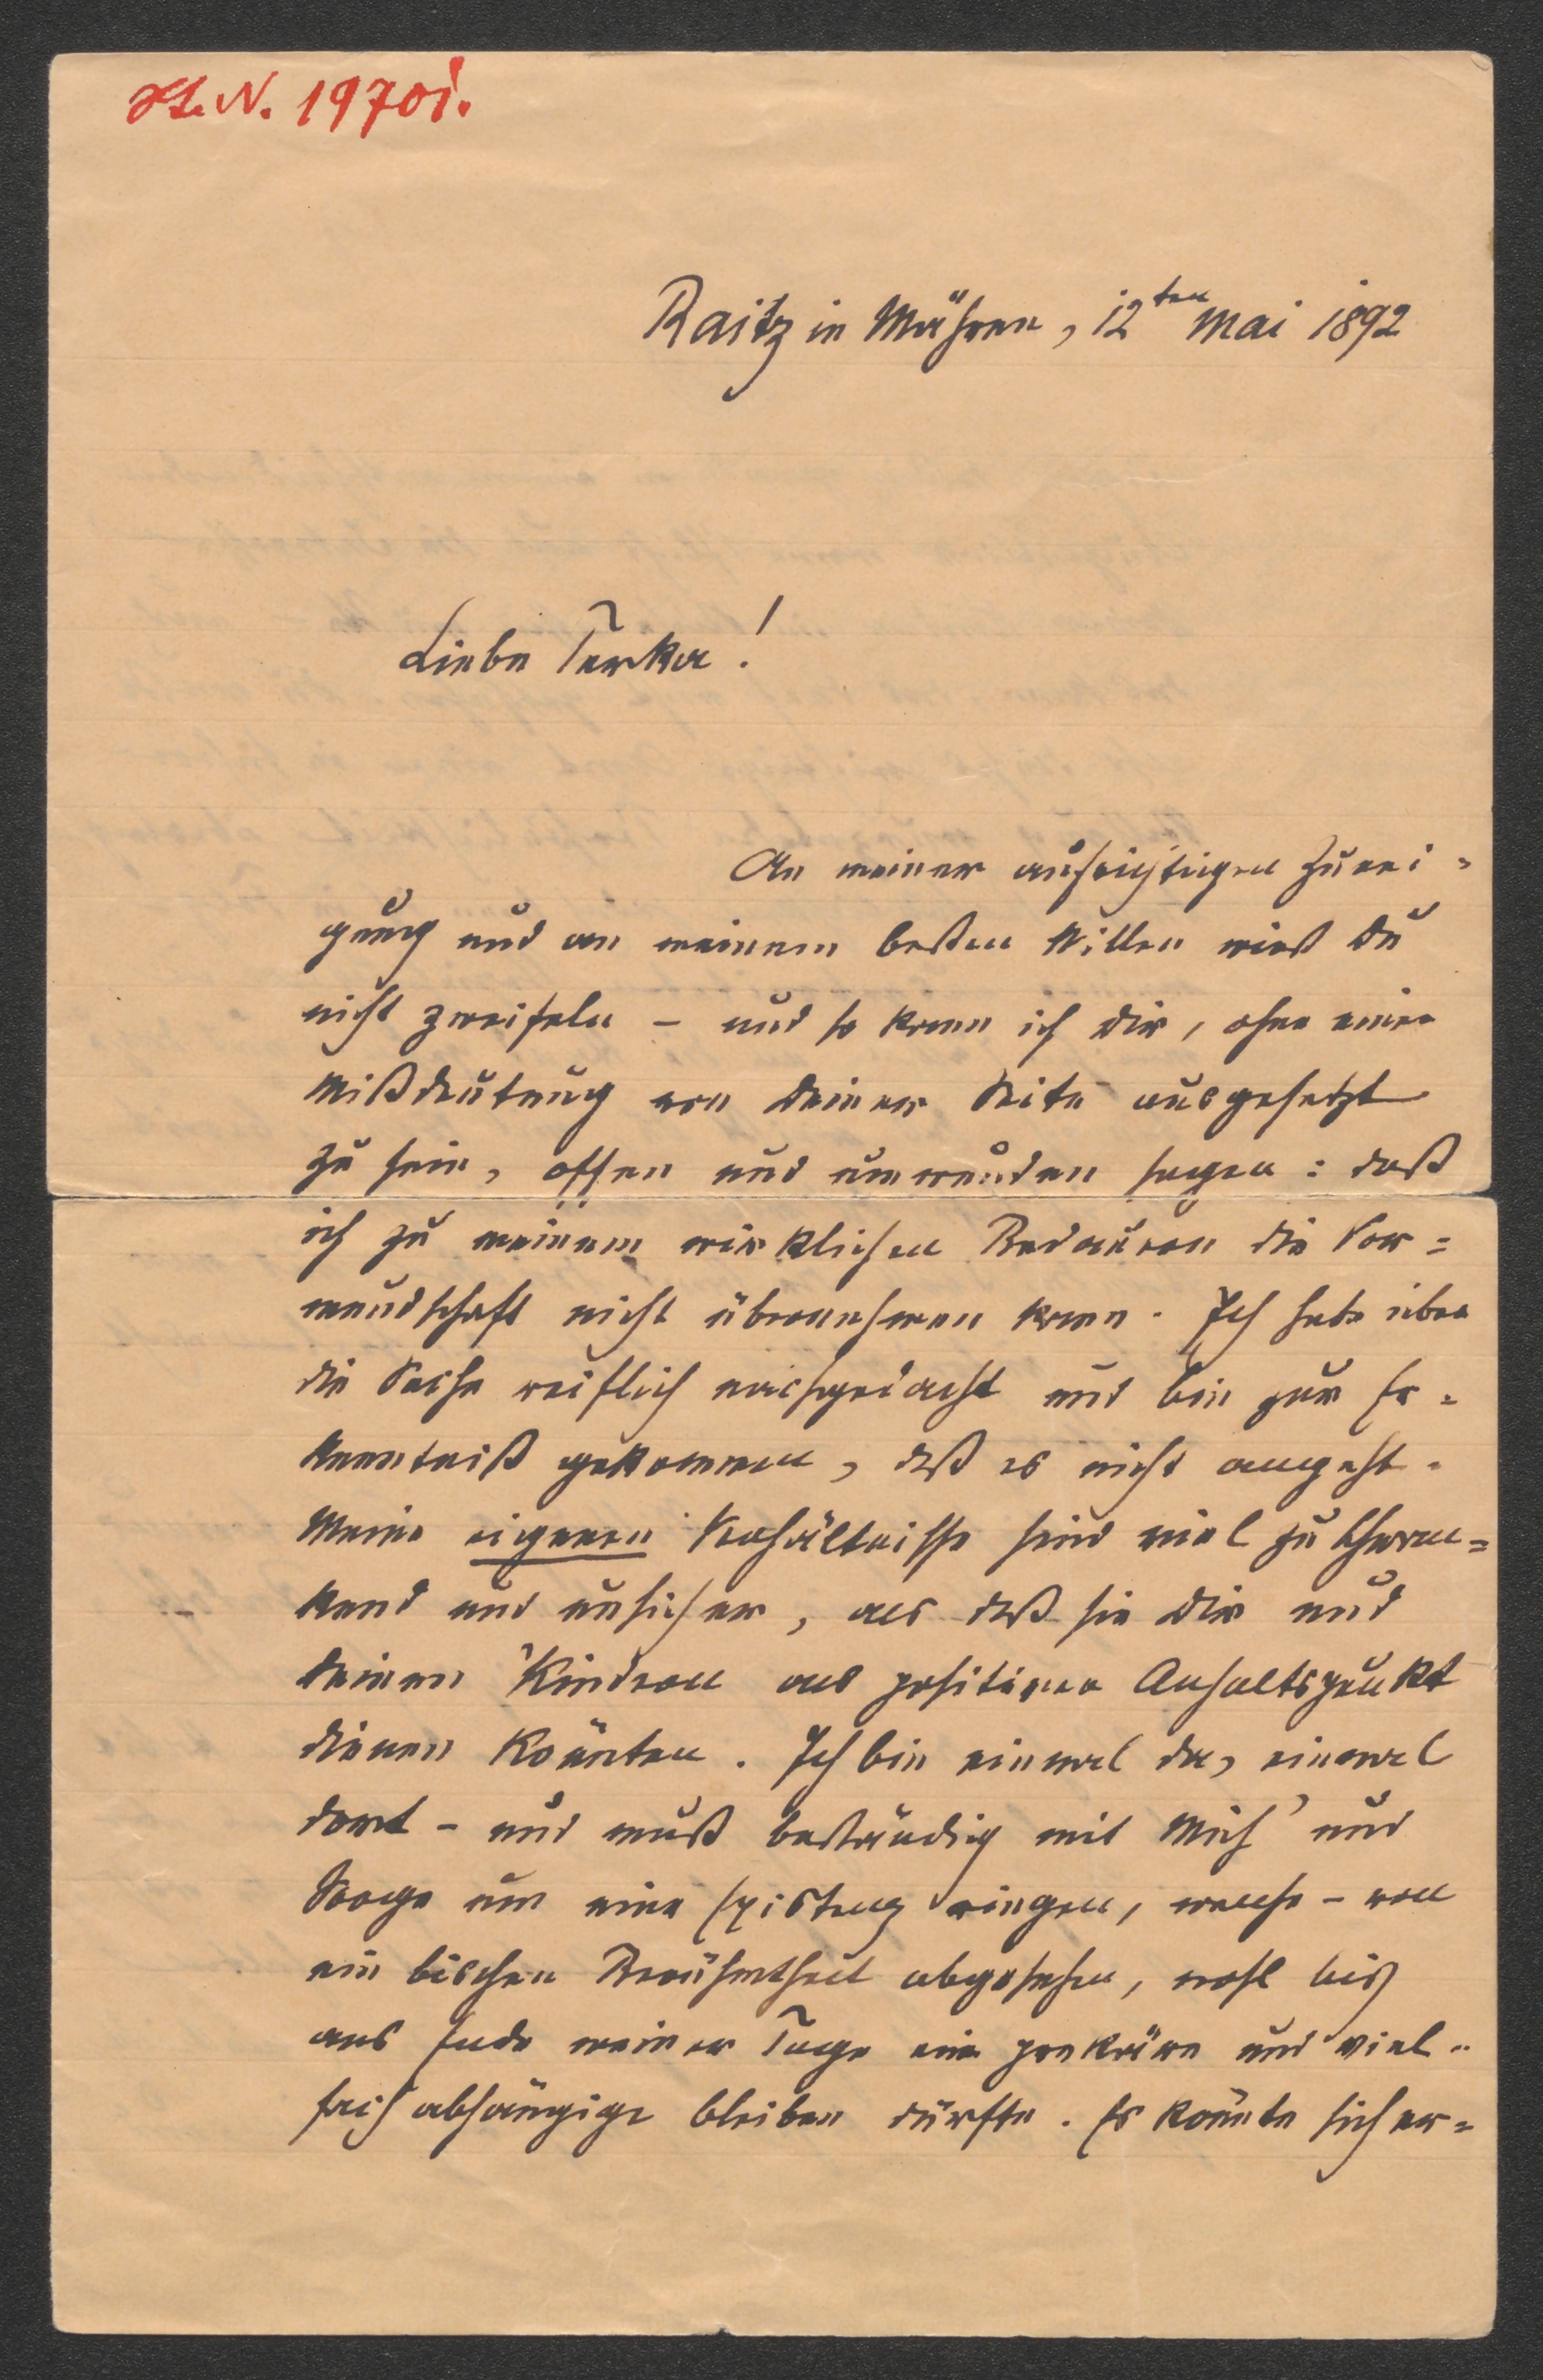 H.I.N. 19701.
Raitz in Mähren, 12ten Mai 1892
Liebe Terka!
An meiner aufrichtigen Zunei=
gung und an meinem besten Willen wirst Du
nicht zweifeln – und so kann ich Dir, ohne einer
Mißdeutung von Deiner Seite ausgesetzt
zu sein, offen und umwunden sagen: daß
ich zu meinem wirklichen Bedauern die Vor=
mundschaft nicht übernehmen kann. Ich habe über
die Sache reiflich nachgedacht und bin zur Er=
kenntniß gekommen, daß es nicht angeht.
Meine eigenen Verhältnisse sind viel zu schwan=
kend und unsicher, als daß sie Dir und
Deinen Kindern als positiver Anhaltspunkt
dienen könnten. Ich bin einmal da, einmal
dort – und muß beständig mit Müh' und
Sorge um eine Existenz ringen, welche – von
ein bischen Berühmtheit abgesehen, wohl bis
ans Ende meiner Tage eine prekäre und viel=
fach abhängige bleiben dürfte. Es könnte sich er=